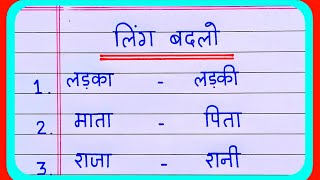 लिंग बदलो
1. लड़का - लड़की
2. माता - पिता
3. राजा - रानी